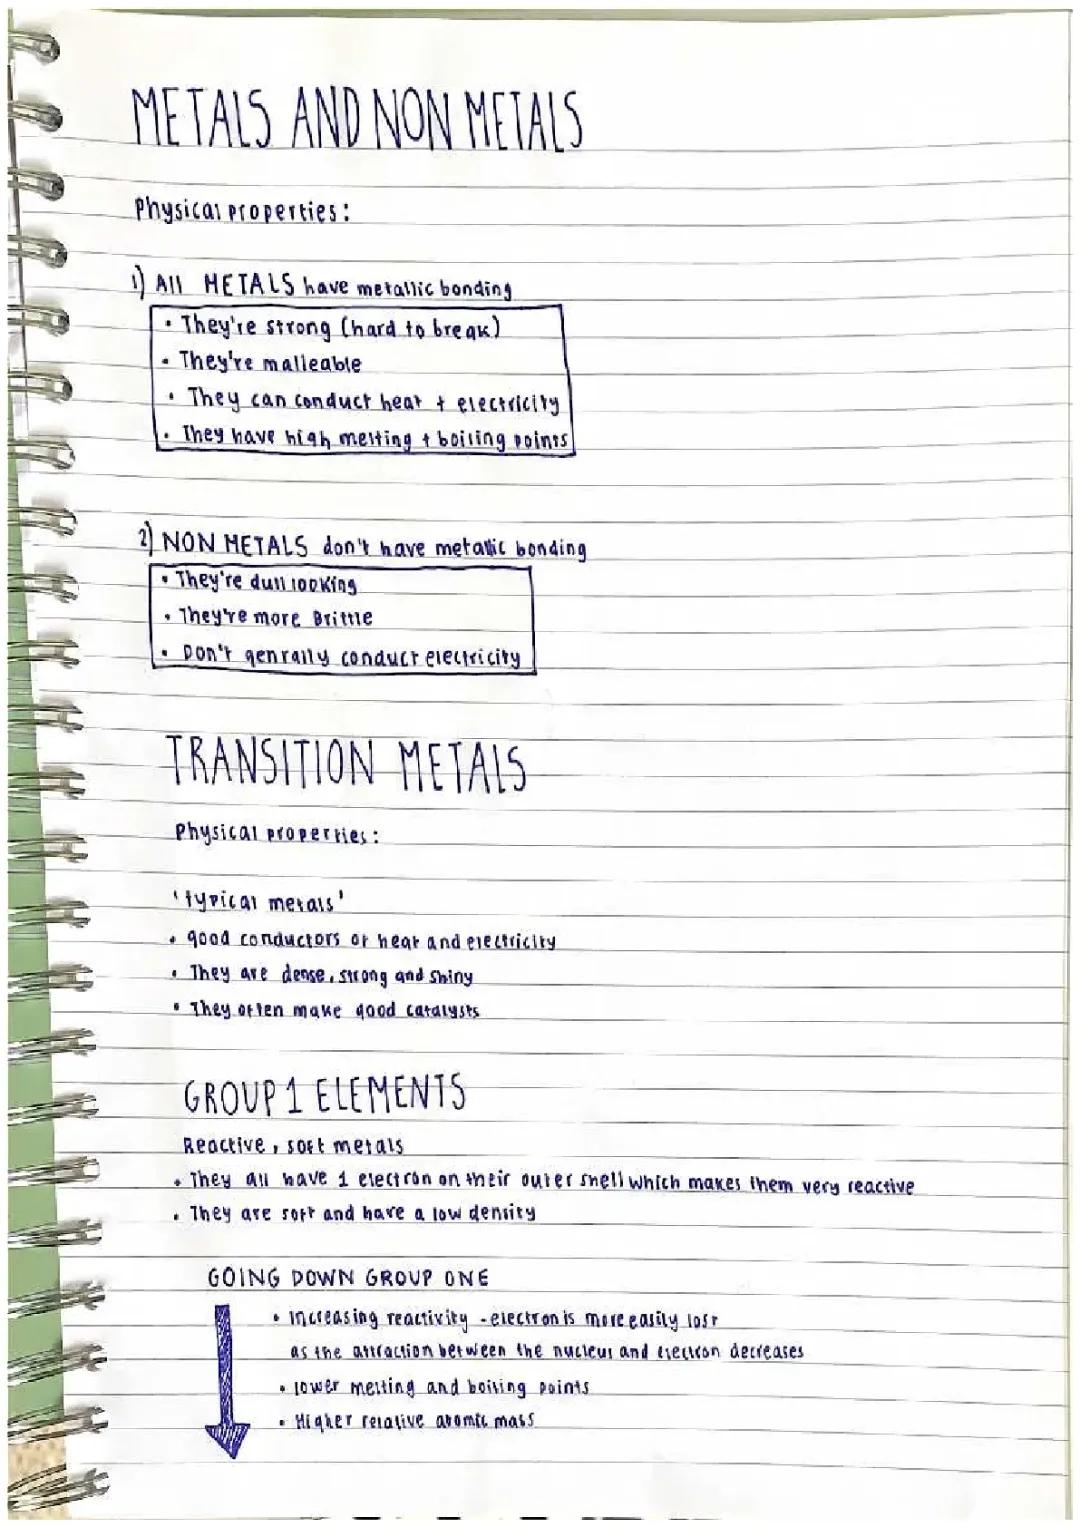 METALS AND NON METALS
Physical properties:
1) All METALS have metallic bonding
• They're strong (hard to break)
• They're malleable
• They can conduct heat + electricity
• They have high melting + boiling points
2) NON METALS don't have metallic bonding
• They're dull looking
• They're more Brittle
• Don't genrally conduct electricity
TRANSITION METALS
Physical properties:
'typical metals'
• good conductors of heat and electricity
• They are dense, strong and shiny
• They often make good catalysts
GROUP 1 ELEMENTS
Reactive, soft metals
• They all have 1 electron on their outer shell which makes them very reactive
• They are soft and have a low density
GOING DOWN GROUP ONE
• Increasing reactivity - electron is more easily lost
as the attraction between the nucleus and electron decreases
• lower melting and boiling points
• Higher relative atomic mass